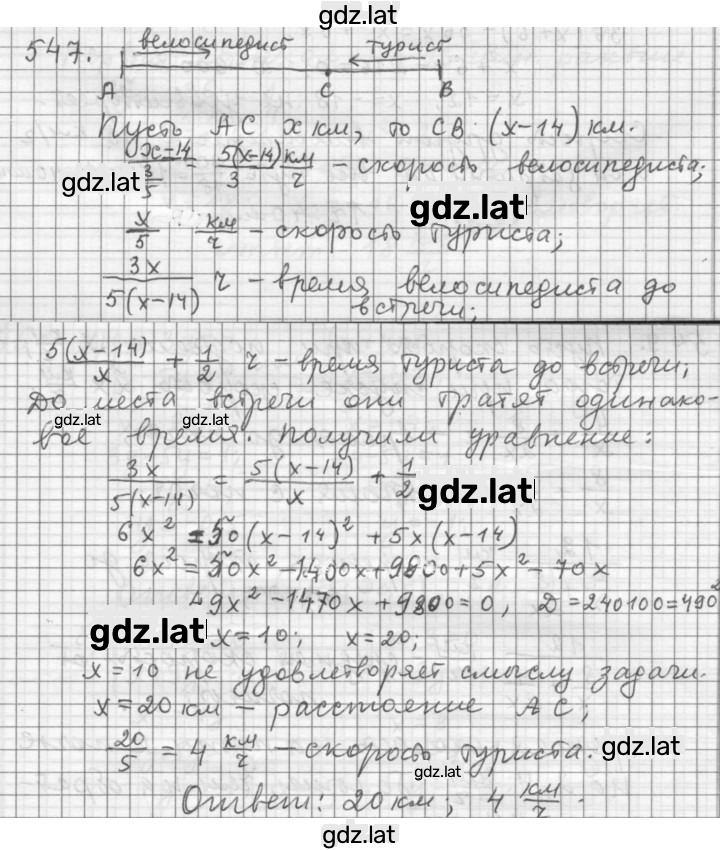 gdz.lat
547. велосипедист турист
A C B
Пусть AC x км, то CB (x-14) км.
(x-14)/(3/5) = 5(x-14)/3 км/ч - скорость велосипедиста;
gdz.lat
gdz.lat
x/5 км/ч - скорость туриста;
3x/(5(x-14)) ч - время велосипедиста до
встречи;
5(x-14)/x + 1/2 ч - время туриста до встречи;
До места встречи они тратят одинако-
gdz.lat gdz.lat
вое время. Получили уравнение:
3x/(5(x-14)) = 5(x-14)/x + 1/2
gdz.lat
6x² = 50(x-14)² + 5x(x-14)
6x² = 50x² - 1400x + 9800 + 5x² - 70x
49x² - 1470x + 9800 = 0, D = 240100 = 490²
gdz.lat
x = 10; x = 20;
x = 10 не удовлетворяет смыслу задачи.
x = 20 км - расстояние AC;
20/5 = 4 км/ч - скорость туриста.
gdz.lat
gdz.lat
Ответ: 20 км; 4 км/ч.
gdz.lat